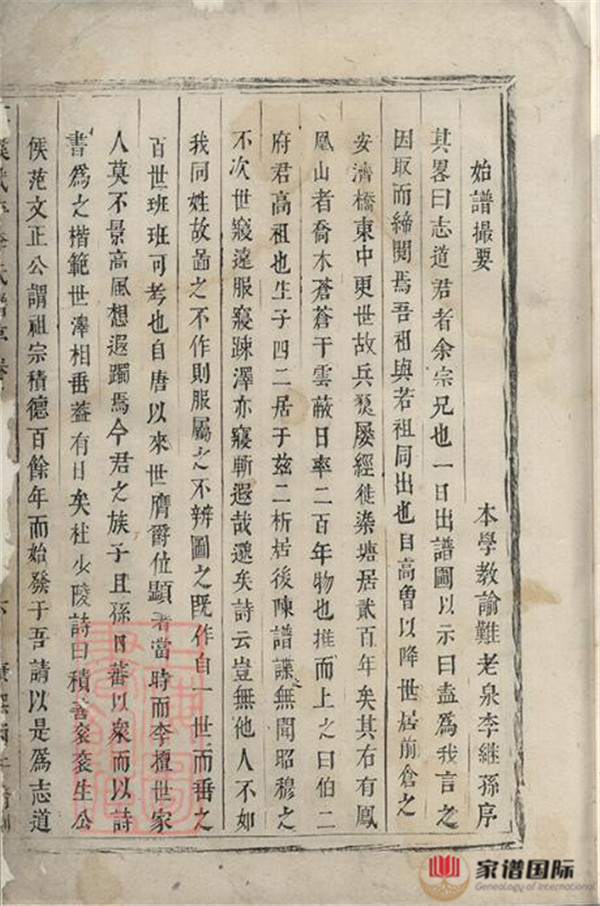 始譜撮要
本學教諭難老泉李繼孫序
其畧曰志道君者余宗兄也一日出譜圖以示曰盍為我言之
因取而締閱焉吾祖與若祖同出也自高曾以降世居前倉之
安濟橋東中更世故兵燹屢經徙染塘居貳百年矣其右有鳳
凰山者喬木蒼蒼干雲蔽日率二百年物也推而上之曰伯二
府君高祖也生子四二居于茲二析居後陳譜諜無聞昭穆之
不次世寖遠服寖踈澤亦寖斬遐哉邈矣詩云豈無他人不如
我同姓故啚之不作則服屬之不辨圖之既作自一世而垂之
百世班班可考也自唐以來世膺爵位顯者當時而李擅世家
人莫不景高風想遐躅焉今君之族子且孫日蕃以衆而以詩
書為之楷範世澤相垂葢有日矣杜少陵詩曰積善袞袞生公
侯范文正公謂祖宗積德百餘年而始發于吾請以是為志道
家谱国际
Genealogy of International